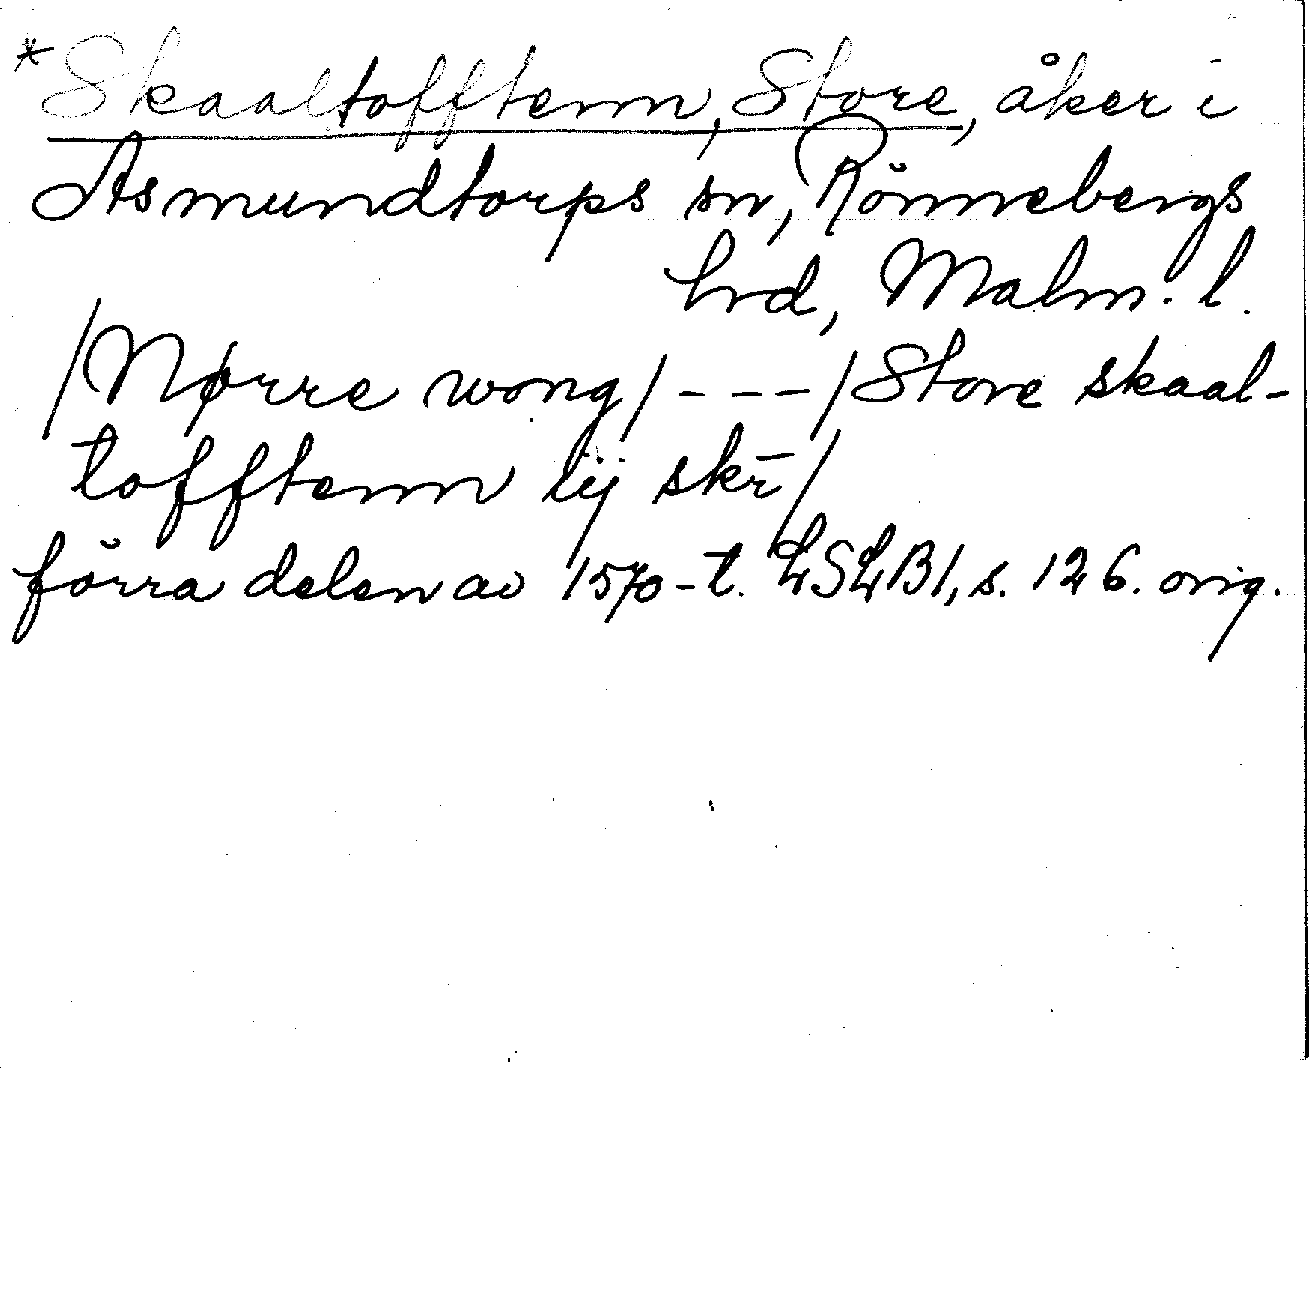 *Skaaltofftenn, Store, åker i
Asmundtorps sn, Rönnebergs
hrd, Malm. l.
/Nørre wong/ - - - /Store skaal-
tofftenn iij skr̄/
förra delen av 1570-t. LSLB1, s. 126. orig.